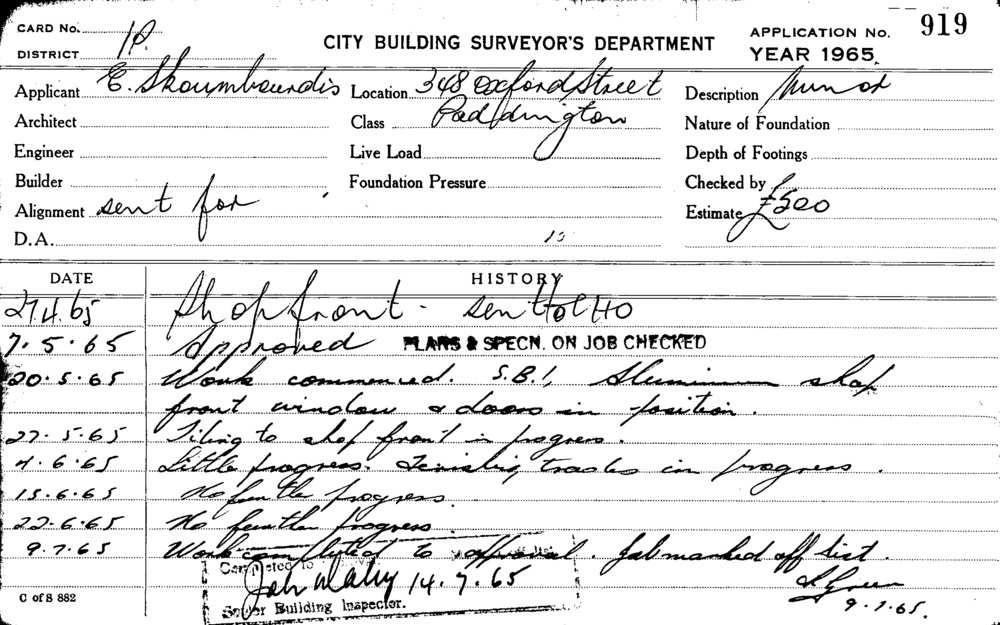 CARD No.
919
DISTRICT 1P.
CITY BUILDING SURVEYOR'S DEPARTMENT
APPLICATION No.
YEAR 1965.
Applicant E. Skoumbourdis Location 348 Oxford Street Description Minor
Architect Class Paddington Nature of Foundation
Engineer Live Load Depth of Footings
Builder Foundation Pressure Checked by
Alignment sent for Estimate £500
D.A.
DATE HISTORY
27.4.65 Shop front - sent to
7.5.65 Approved PLANS & SPECN. ON JOB CHECKED
20.5.65 Work commenced. S.B.I. Aluminium shop
front window & doors in position.
27.5.65 Tiling to shop front in progress.
4.6.65 Little progress. Finishing trades in progress.
15.6.65 No further progress.
22.6.65 No further progress.
9.7.65 Work completed to approval. Job marked off list.
Completed to
14.7.65
Senior Building Inspector.
Green
9.7.65.
C of S 882